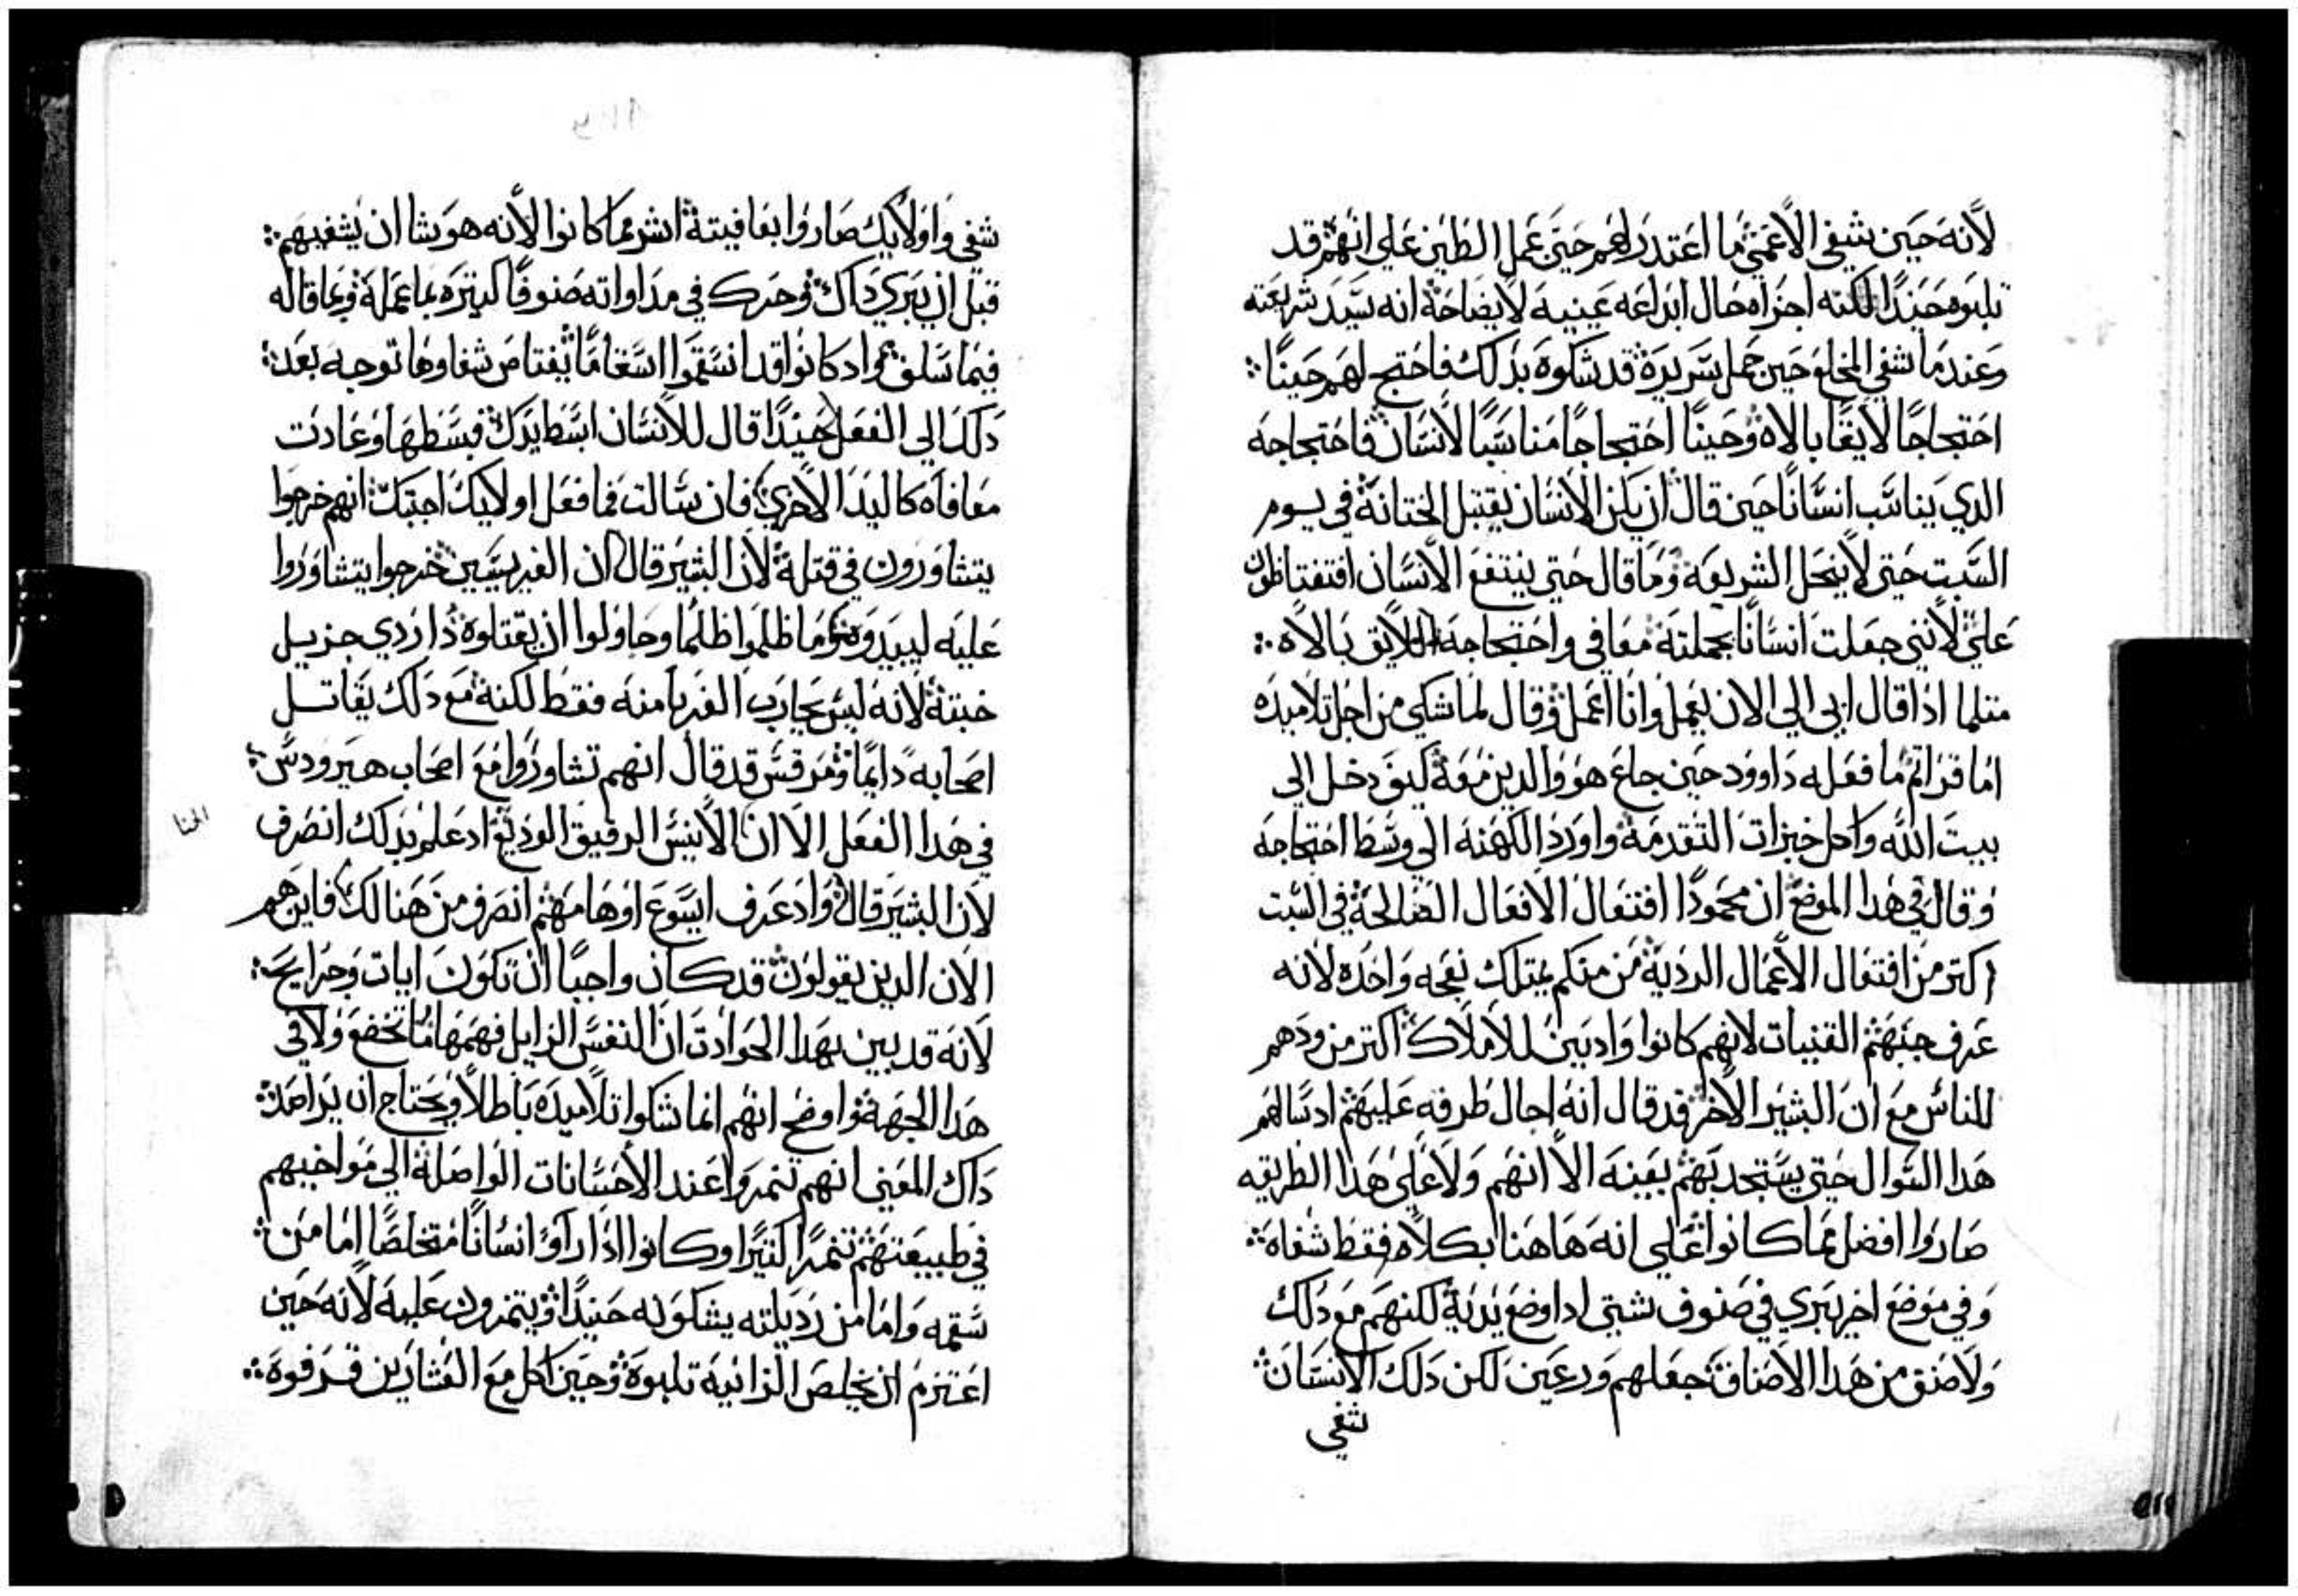 لأنه حين شفى الأعمى ما اعتدر لهم حين عمل الطين على انهم قد
تلبوه حيندًا لكنه اجزاه حال ابداعه عينيه لايضاحة انه سيد شريعته
وعندما شفي المخلع حين حمل سريره قد شكوه بدلك فاحتج لهم حينًا
احتجاجًا لايقًا بالاه وحينًا احتجاجًا مناسبًا لأنسان فاحتجاجه
الدي يناسب انسانًا حين قال ان يكن الأنسان يقتبل الختانة في يوم
السبت حتى لا ينحل الشريعة وما قال حتى ينتفع الأنسان افتغتاظون
علي لأنني جعلت انسانًا بجملته معافي واحتجاجه اللايق بالاه
متلما ادا قال ابي الى الان يعمل وانا اعمل وقال لما شكي من اجل تلاميده
اما قراتم ما فعله داوود حين جاع هو والدين معه كيف دخل الى
بيت الله واكل خبزات التقدمة واورد الكهنة الى وسط احتجاجه
وقال في هدا الموضع ان محمودًا افتعال الافعال الصالحة في السبت
اكتر من افتعال الأعمال الردية من منكم يمتلك نعجه واحده لأنه
عرف حبهم القنيات لانهم كانوا وادين للأملاك اكتر من ودهم
للناس مع ان البشير الأخر قد قال انه اجال طرفه عليهم اد سالهم
هدا السوال حتى يستجدبهم بعينه الا انهم ولا على هدا الطريقه
صاروا افضل مما كانوا على انه هاهنا بكلام فقط شفاه
وفي موضع اخر يبري في صنوف شتى ادا وضع يديه لكنهم مع دلك
ولا صنف من هدا الأصناف جعلهم ودعين لكن دلك الأنسان
شفي
شفي واولأيك صاروا بعافيته اشر مما كانوا لأنه هو يشا ان يشفيهم
قبل ان يبري داك وحرك في مداواته صنوفًا كتيره بما عمله وبما قاله
فيما سلف واد كانوا قد انسقموا اسقامًا تفتا من شفاوها توجه بعد
دلك الى الفعل حيندًا قال للأنسان ابسط يدك فبسطها وعادت
معافاه كاليد الأخرى فان سالت فما فعل اولايك اجبتك انهم خرجوا
يتشاورون في قتله لأن البشير قال ان الفريسيين خرجوا يتشاوروا
عليه ليبيدوه وما ظلموا ظلما وحاولوا ان يقتلوه دا ردي جزيل
خبته لأنه ليس يحارب الغربا منه فقط لكنه مع دلك يقاتل
اصحابه دايمًا ومرقس قد قال انهم تشاوروا مع اصحاب هيرودس
في هدا الفعل الا ان الأنيس الرفيق الوديع اد علم بدلك انصرف
لأن البشير قال واد عرف ايسوع اوهامهم انصرف من هنالك فاين هم
الان الدين يقولون قد كان واجبًا ان تكون ايات وجرايح
لأنه قد بين بهدا الحوادت ان النفس الزايل فهمها ما تخضع ولا في
هدا الجهة واوضح انهم انما شكوا تلاميده باطلاً ويحتاج ان يراصد
داك المعنى انهم تنمروا عند الأحسانات الواصلة الى مواخيهم
في طبيعتهم تنمرًا كتيرًا وكانوا ادا راوا انسانًا متخلصًا اما من
سقمه واما من رديلته يشكونه حيندًا ويتنمرون عليه لأنه حين
اعتزم ان يخلص الزانية تلبوه وحين اكل مع العشارين قرفوه